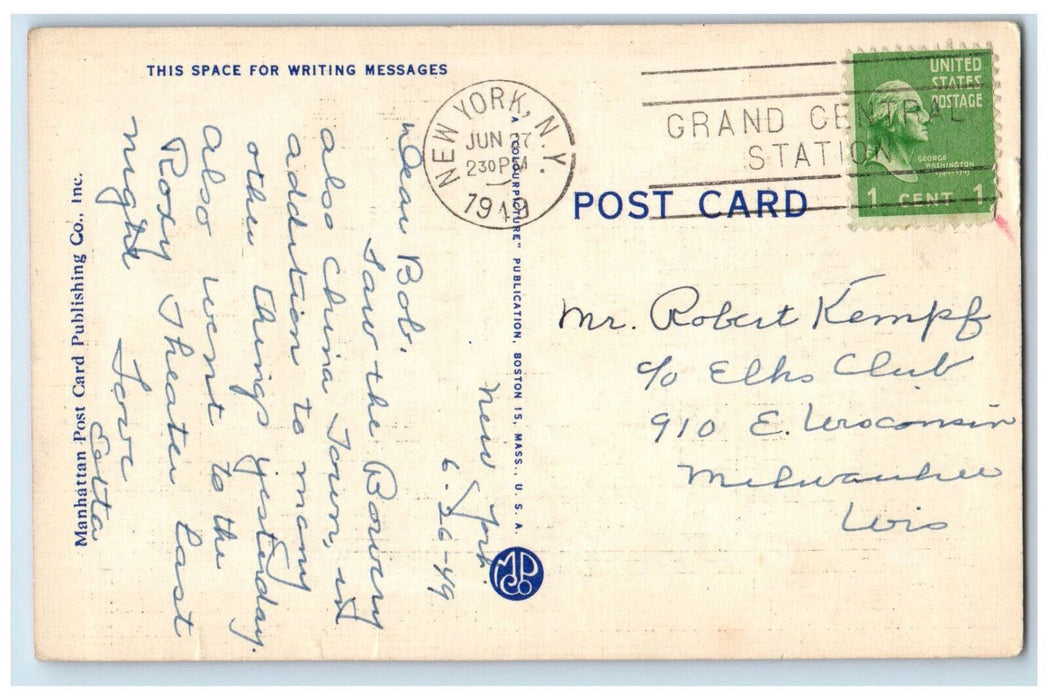 THIS SPACE FOR WRITING MESSAGES
New York.
6-26-49
Dear Bob,
Saw the Bowery
also China Town, in
addition to many
other things yesterday.
Also went to the
Roxy Theater last
night
Love
Manhattan Post Card Publishing Co., Inc.
A "COLOURPICTURE" PUBLICATION, BOSTON 15, MASS., U. S. A.
MPC
NEW YORK, N.Y.
JUN 27
2 30 PM
1949
GRAND CENTRAL
STATION
UNITED
STATES
POSTAGE
GEORGE
WASHINGTON
1 CENT 1
POST CARD
Mr. Robert Kempf
c/o Elks Club
910 E. Wisconsin
Milwaukee
Wis